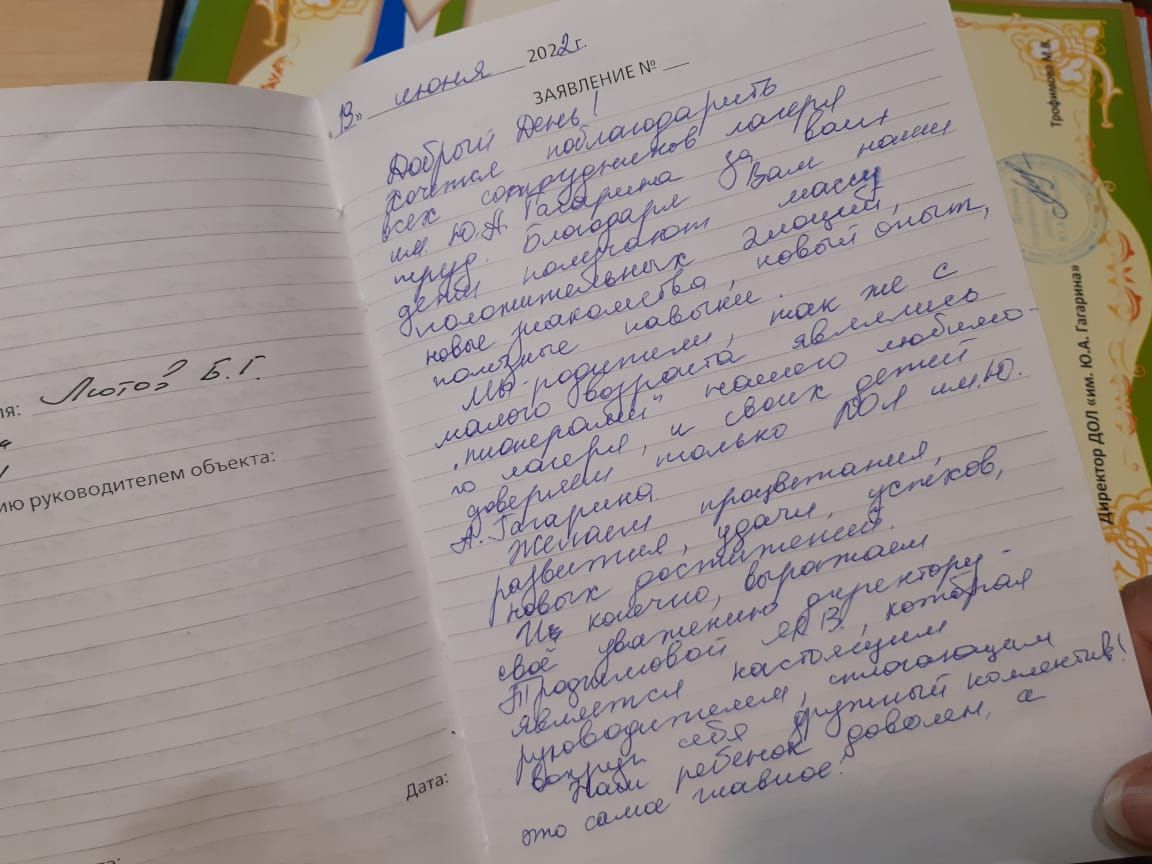 ля:
Б. Г.
ию руководителем объекта:
Дата:
та:
«13» июня 2022г.
ЗАЯВЛЕНИЕ №
Добрый День!
Хочется поблагодарить
всех сотрудников лагеря
им. Ю.А Гагарина за ваш
труд. Благодаря Вам наши
дети получают массу
положительных эмоций,
новые знакомства, новый опыт,
полезные навыки.
Мы-родители, так же с
малого возраста являлись
„пионерами" нашего любимо-
го лагеря, и своих детей
доверяем только ДОЛ им.Ю.
А. Гагарина.
Желаем процветания,
развития, удачи, успехов,
новых достижений.
И конечно, выражаем
своё уважению директору -
Трофимовой М.В., которая
является настоящим
руководителем, сплочающим
вокруг себя дружный коллектив!
Наш ребенок доволен, а
это самое главное!
Трофимова М.В.
Директор ДОЛ «им. Ю.А. Гагарина»